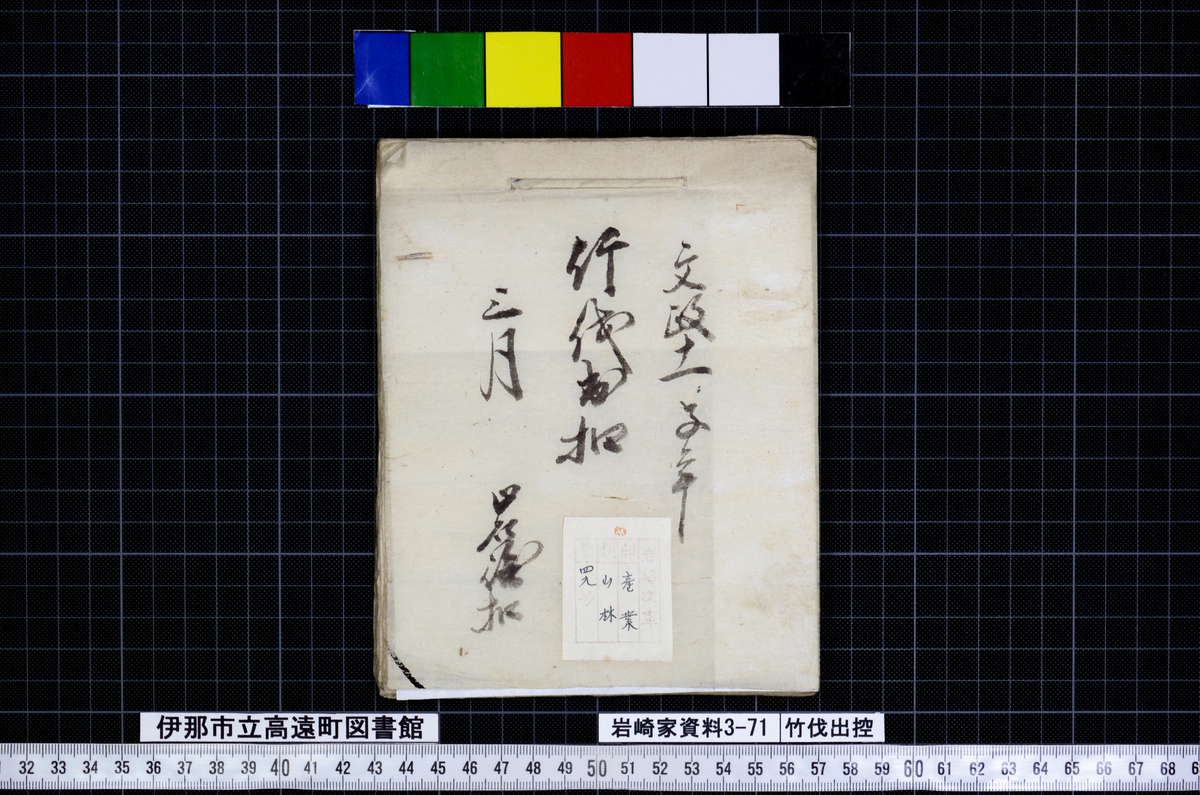 文政十一子年
竹伐出扣
三月
扣
産業
山林
四九
伊那市立高遠町図書館
岩崎家資料3-71
竹伐出控
32 33 34 35 36 37 38 39 40 41 42 43 44 45 46 47 48 49 50 51 52 53 54 55 56 57 58 59 60 61 62 63 64 65 66 67 68